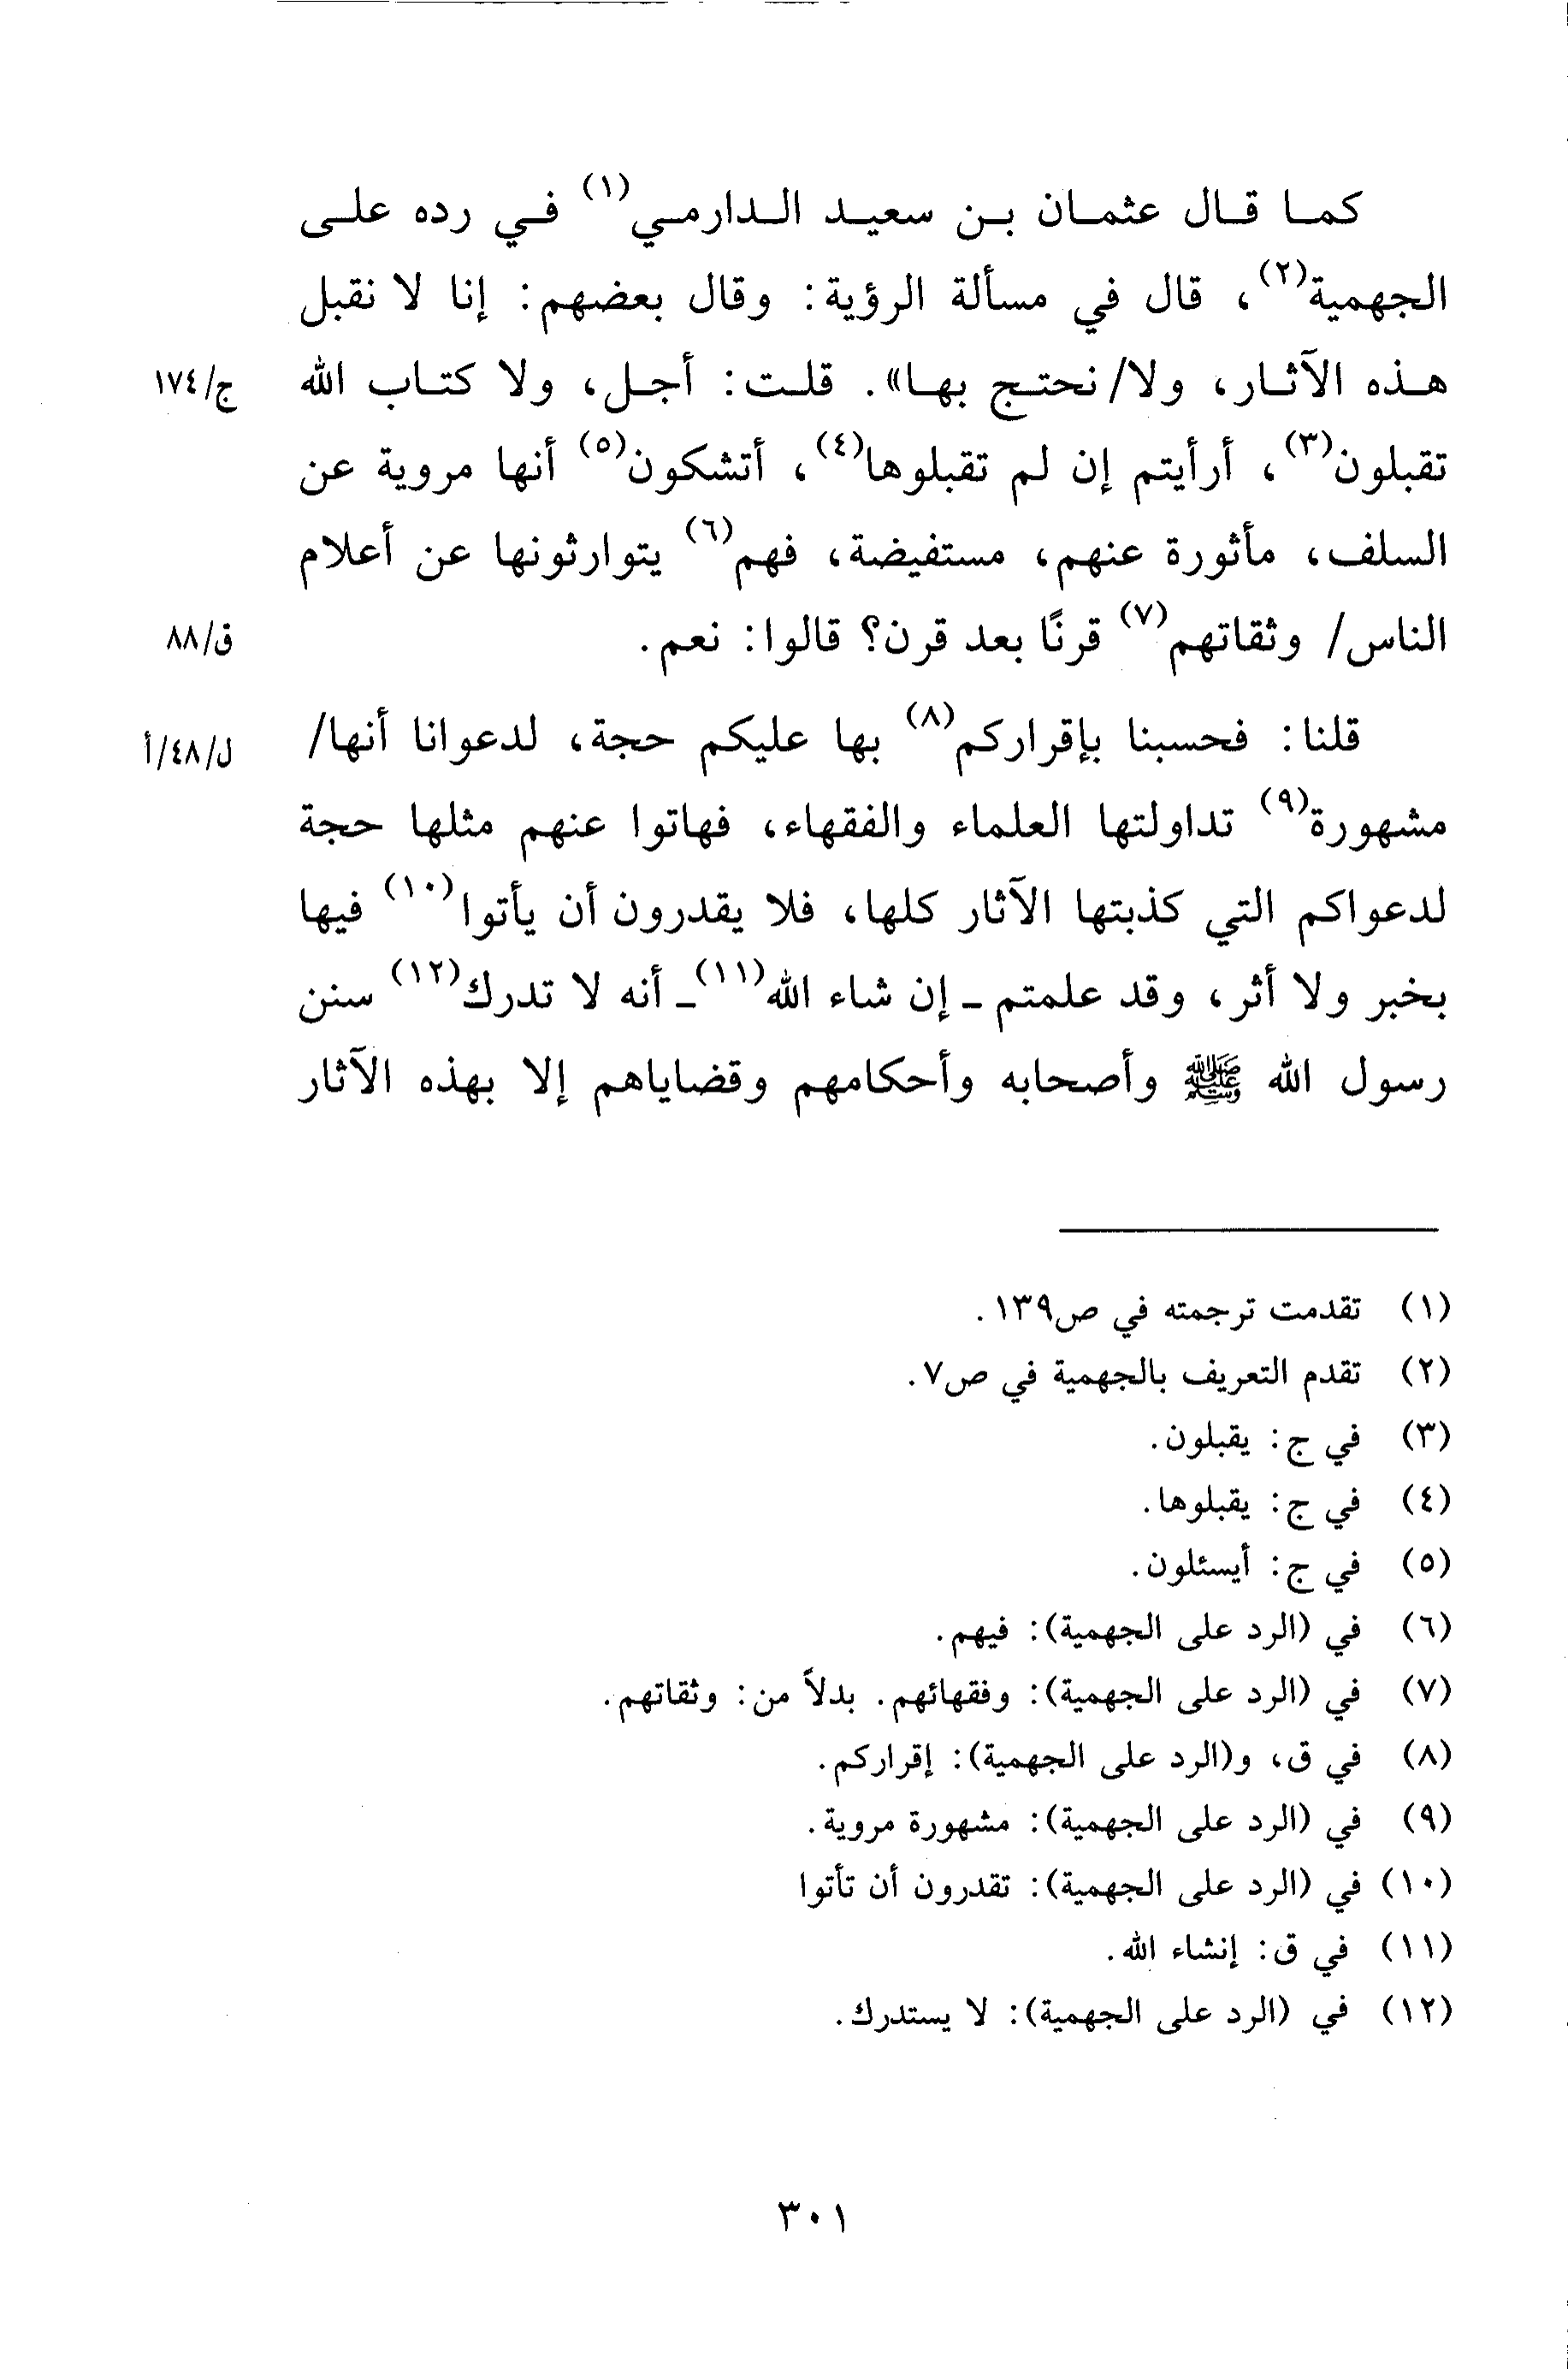 كما قال عثمان بن سعيد الدارمي(١) في رده على
الجهمية(٢)، قال في مسألة الرؤية: وقال بعضهم: إنا لا نقبل
هذه الآثار، ولا/ نحتج بها». قلت: أجل، ولا كتاب الله ج/١٧٤
تقبلون(٣)، أرأيتم إن لم تقبلوها(٤)، أتشكون(٥) أنها مروية عن
السلف، مأثورة عنهم، مستفيضة، فهم(٦) يتوارثونها عن أعلام
الناس/ وثقاتهم(٧) قرنًا بعد قرن؟ قالوا: نعم. ق/٨٨
قلنا: فحسبنا بإقراركم(٨) بها عليكم حجة، لدعوانا أنها/ ل/٤٨/أ
مشهورة(٩) تداولتها العلماء والفقهاء، فهاتوا عنهم مثلها حجة
لدعواكم التي كذبتها الآثار كلها، فلا يقدرون أن يأتوا(١٠) فيها
بخبر ولا أثر، وقد علمتم ـ إن شاء الله(١١)ـ أنه لا تدرك(١٢) سنن
رسول الله ﷺ وأصحابه وأحكامهم وقضاياهم إلا بهذه الآثار
(١) تقدمت ترجمته في ص١٣٩.
(٢) تقدم التعريف بالجهمية في ص٧.
(٣) في ج: يقبلون.
(٤) في ج: يقبلوها.
(٥) في ج: أيسئلون.
(٦) في (الرد على الجهمية): فيهم.
(٧) في (الرد على الجهمية): وفقهائهم. بدلاً من: وثقاتهم.
(٨) في ق، و(الرد على الجهمية): إقراركم.
(٩) في (الرد على الجهمية): مشهورة مروية.
(١٠) في (الرد على الجهمية): تقدرون أن تأتوا
(١١) في ق: إنشاء الله.
(١٢) في (الرد على الجهمية): لا يستدرك.
٣٠١